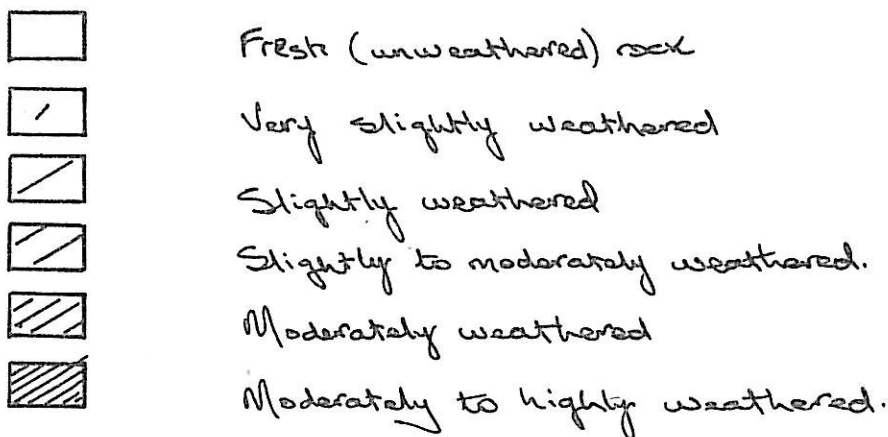 Fresh (unweathered) rock
Very slightly weathered
Slightly weathered
Slightly to moderately weathered.
Moderately weathered
Moderately to highly weathered.